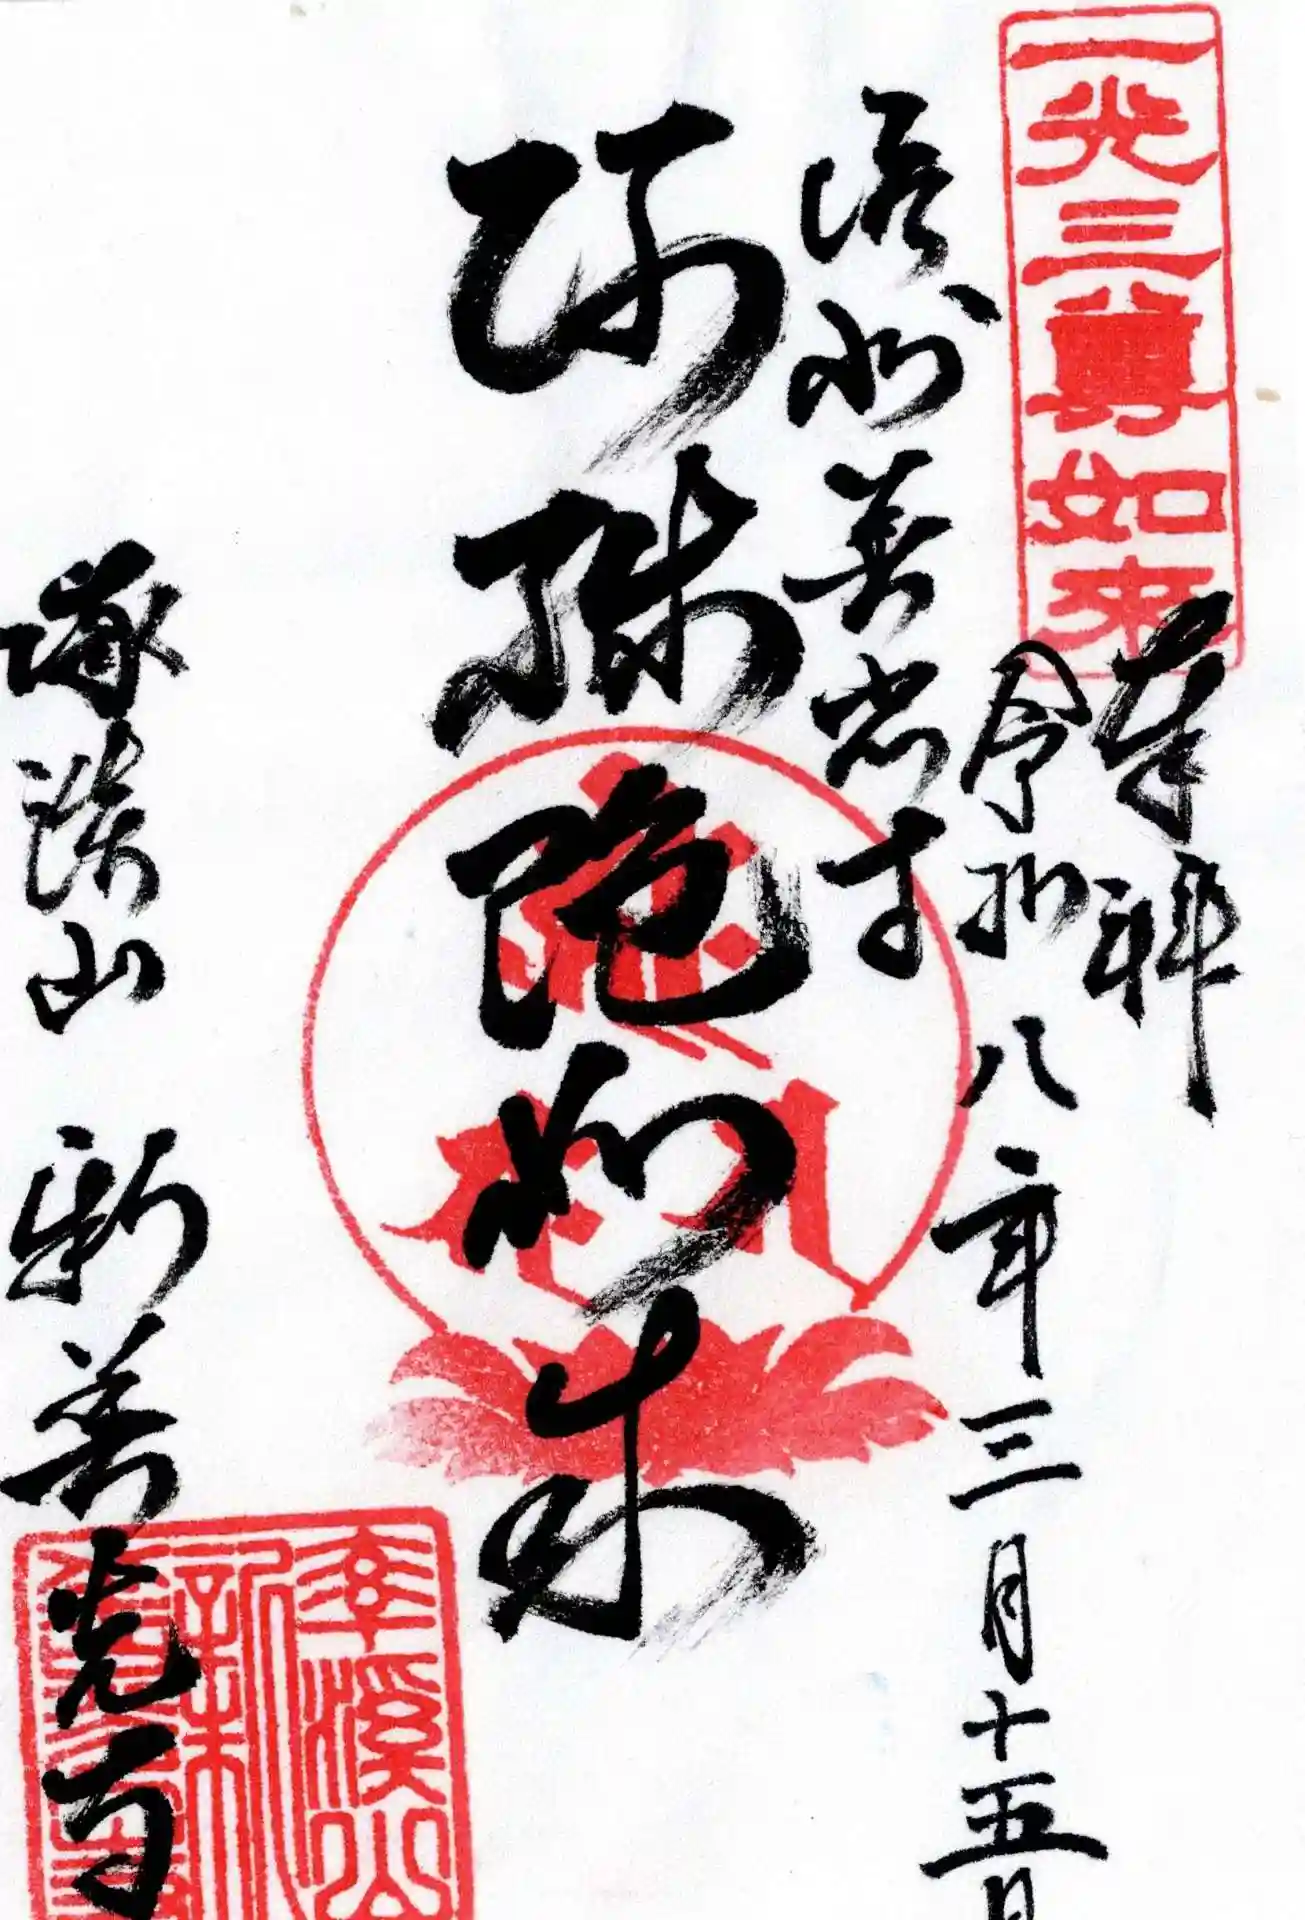 一光三尊如来
奉拝
令和八年三月十五日
州善光寺
阿弥陀如来
渓山 新善光寺
溪山
新